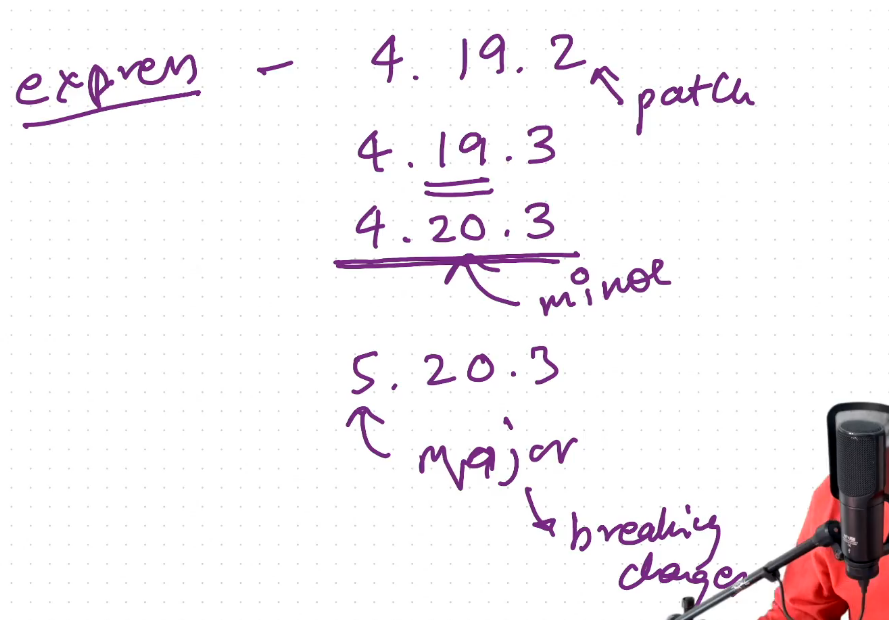 express - 4.19.2
patch
4.19.3
4.20.3
minor
5.20.3
major
breaking
changes